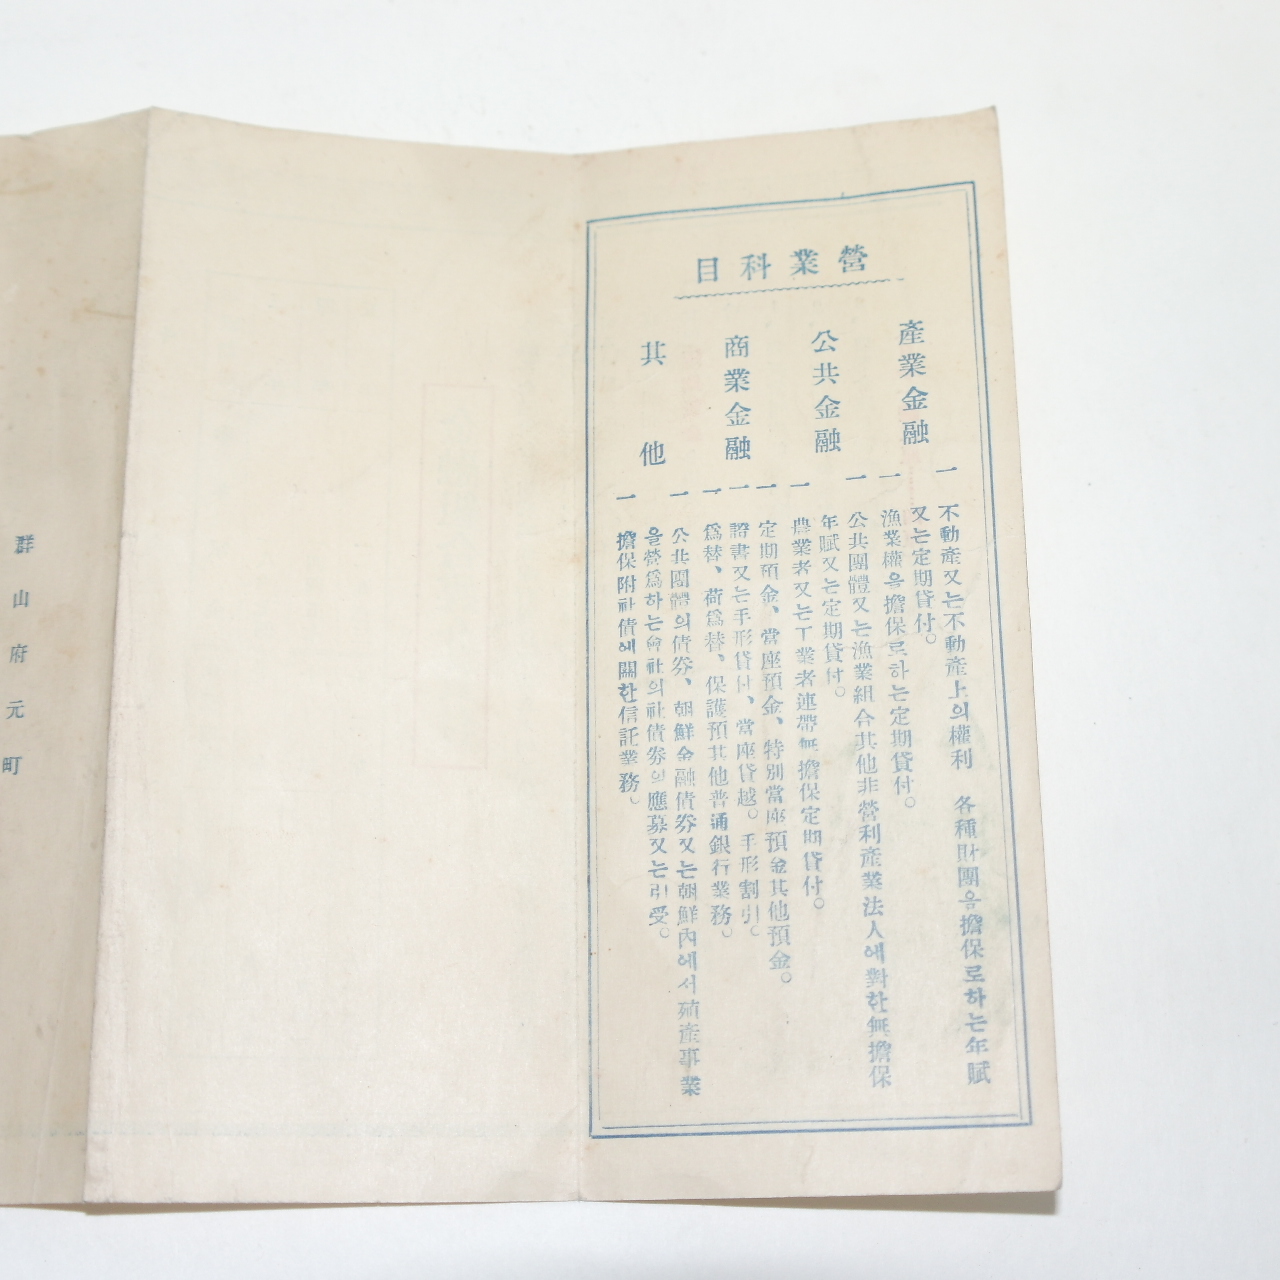 營業科目
產業金融
一 不動產又는不動產上의權利 各種財團을擔保로하는年賦
又는定期貸付。
一 漁業權을擔保로하는定期貸付。
公共金融
一 公共團體又는漁業組合其他非營利產業法人에對한無擔保
年賦又는定期貸付。
一 農業者又는工業者連帶無擔保定期貸付。
商業金融
一 定期預金、當座預金、特別當座預金其他預金。
一 證書又는手形貸付、當座貸越。手形割引。
一 爲替、荷爲替、保護預其他普通銀行業務。
其他
一 公共團體의債券、朝鮮金融債券又는朝鮮內에서殖產事業
을營爲하는會社의社債券의應募又는引受。
一 擔保附社債에關한信託業務。
群山府元町